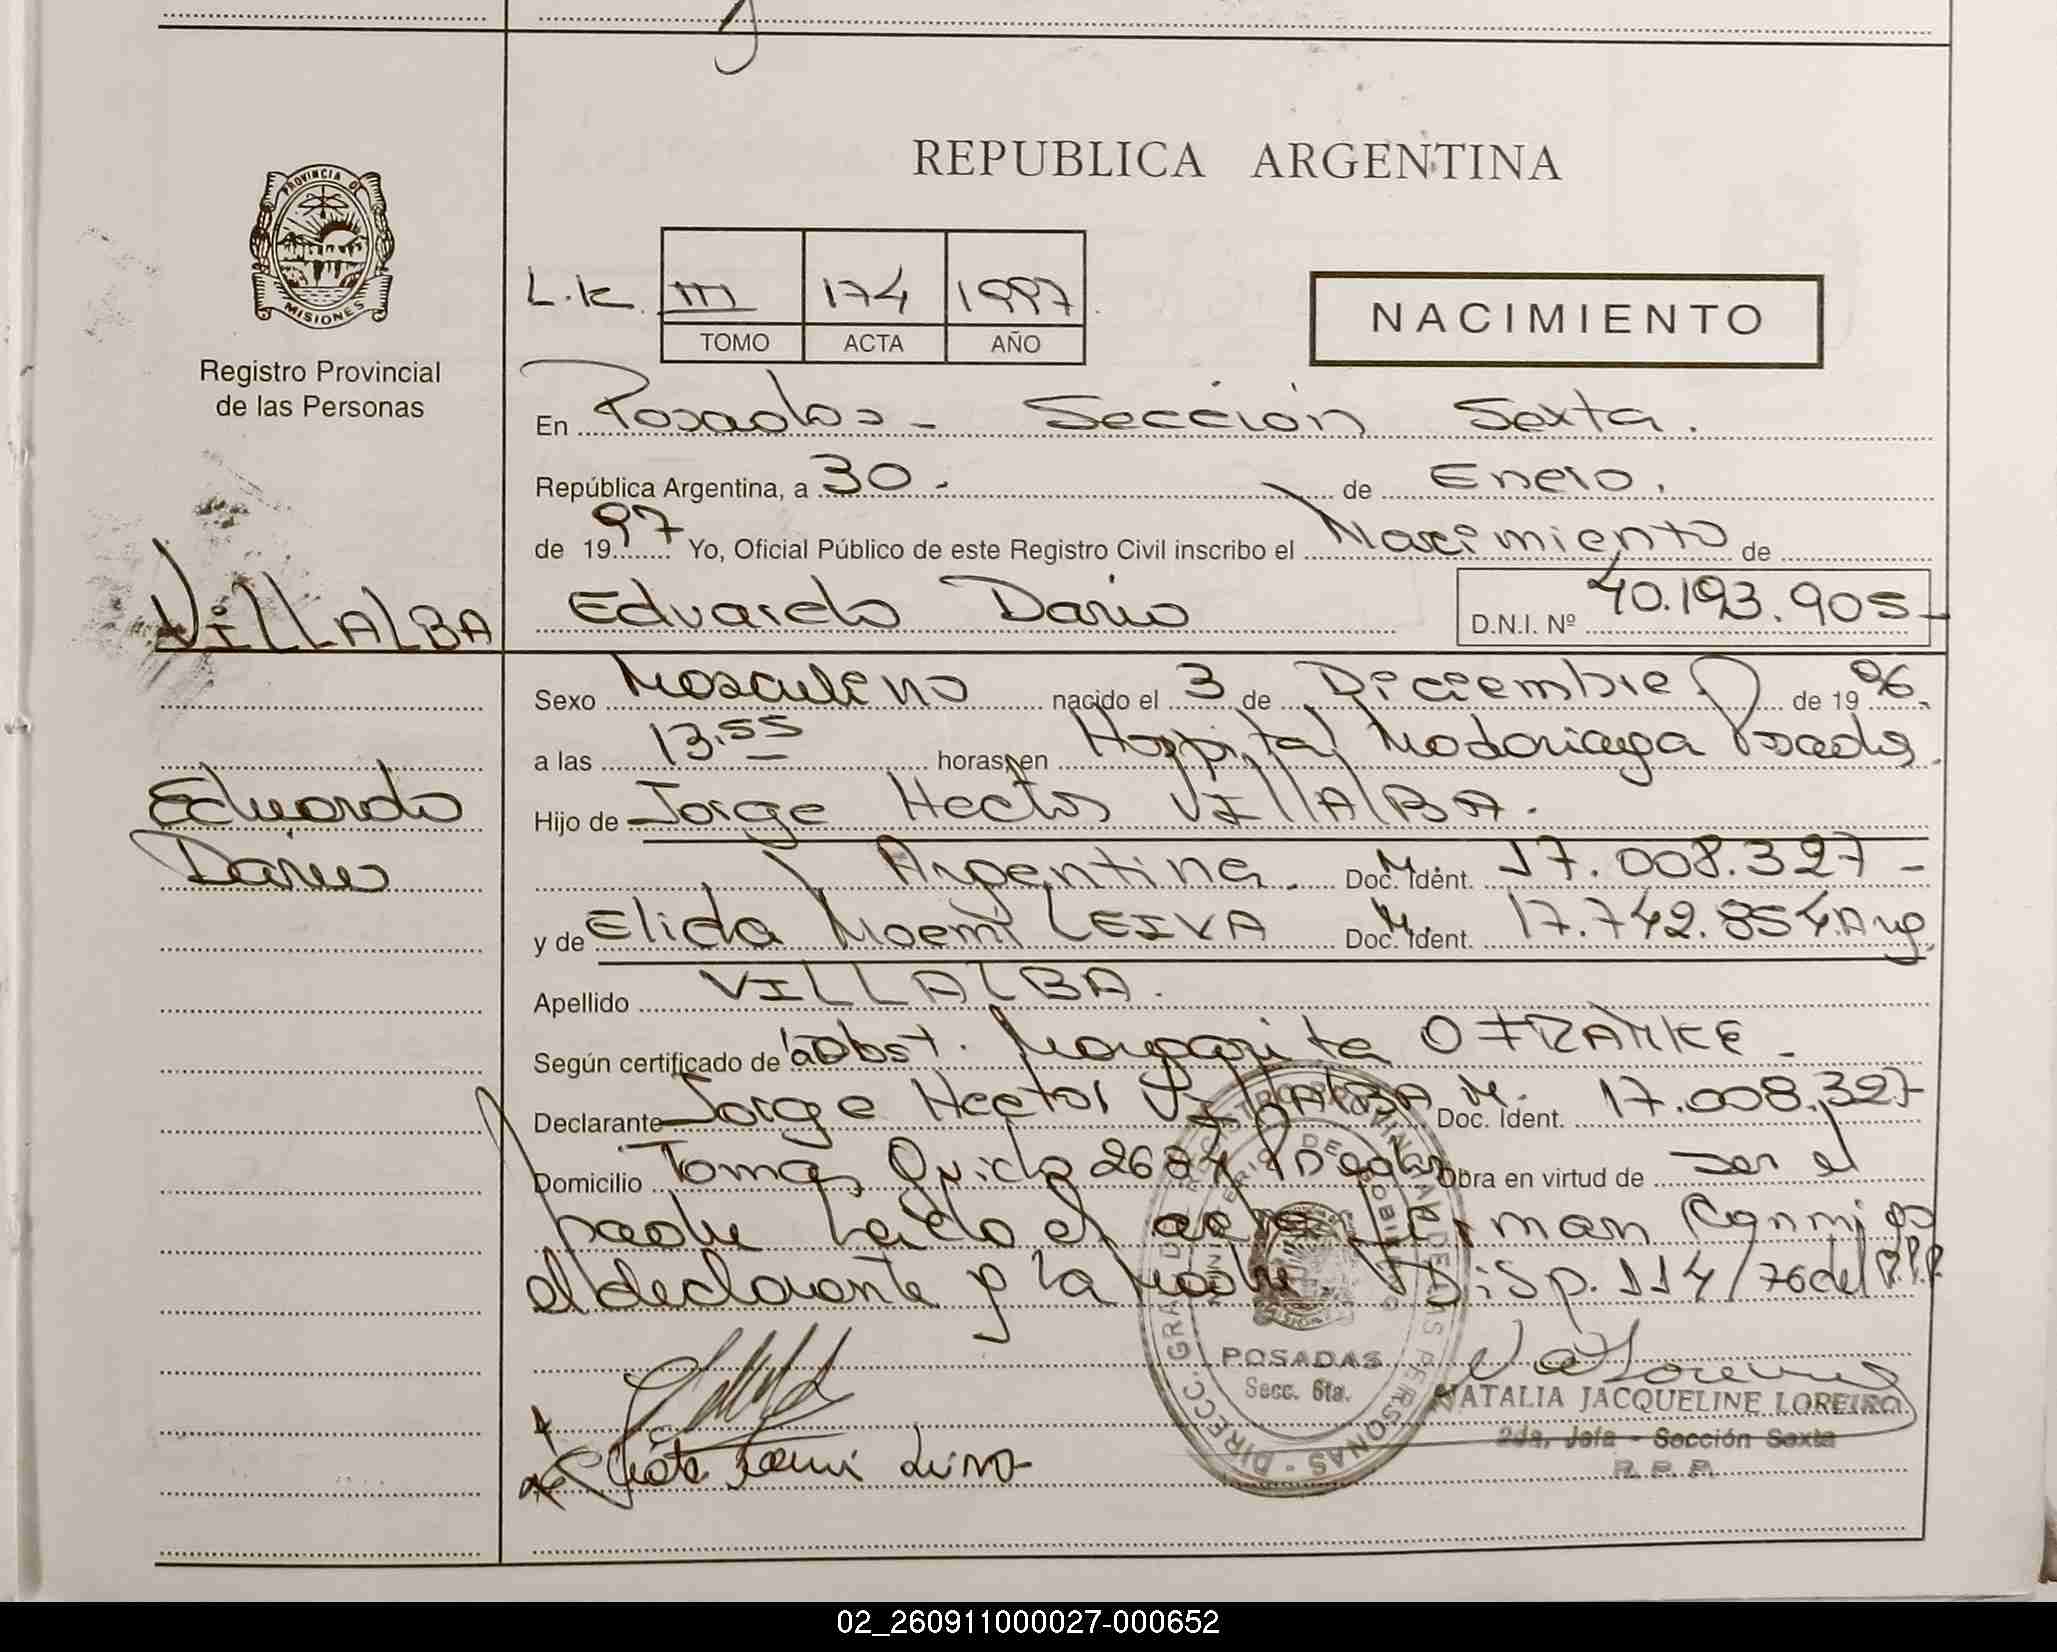 REPUBLICA ARGENTINA
PROVINCIA DE
MISIONES
Registro Provincial
de las Personas
L.K. III 174 1997
TOMO ACTA AÑO
NACIMIENTO
En Posadas - Sección Sexta.
República Argentina, a 30. de Enero.
de 1997 Yo, Oficial Público de este Registro Civil inscribo el Nacimiento de
VILLALBA
Eduardo Dario D.N.I. Nº 40.193.905-
Sexo Masculino nacido el 3 de Diciembre de 1996.
a las 13.55 horas, en Hospital Madariaga Posadas.
Eduardo
Dario
Hijo de Jorge Hector VILLALBA.
Argentina. Doc. M. Ident. 17.008.327-
y de Elida Noemi LEIVA Doc. M. Ident. 17.742.854 Arg.
Apellido VILLALBA.
Según certificado de la Obst. Margarita
Declarante Jorge Hector VILLALBA M. Doc. Ident. 17.008.327
Domicilio Tomas Guido Obra en virtud de ser el
padre Leido el acta firman Conmigo
el declarante y la Madre. Disp. 114/76 del R.P.P.
POSADAS
Secc. 6ta.
NATALIA JACQUELINE LOREIRO
2da. Jefa - Sección Sexta
R. P. P.
02_260911000027-000652